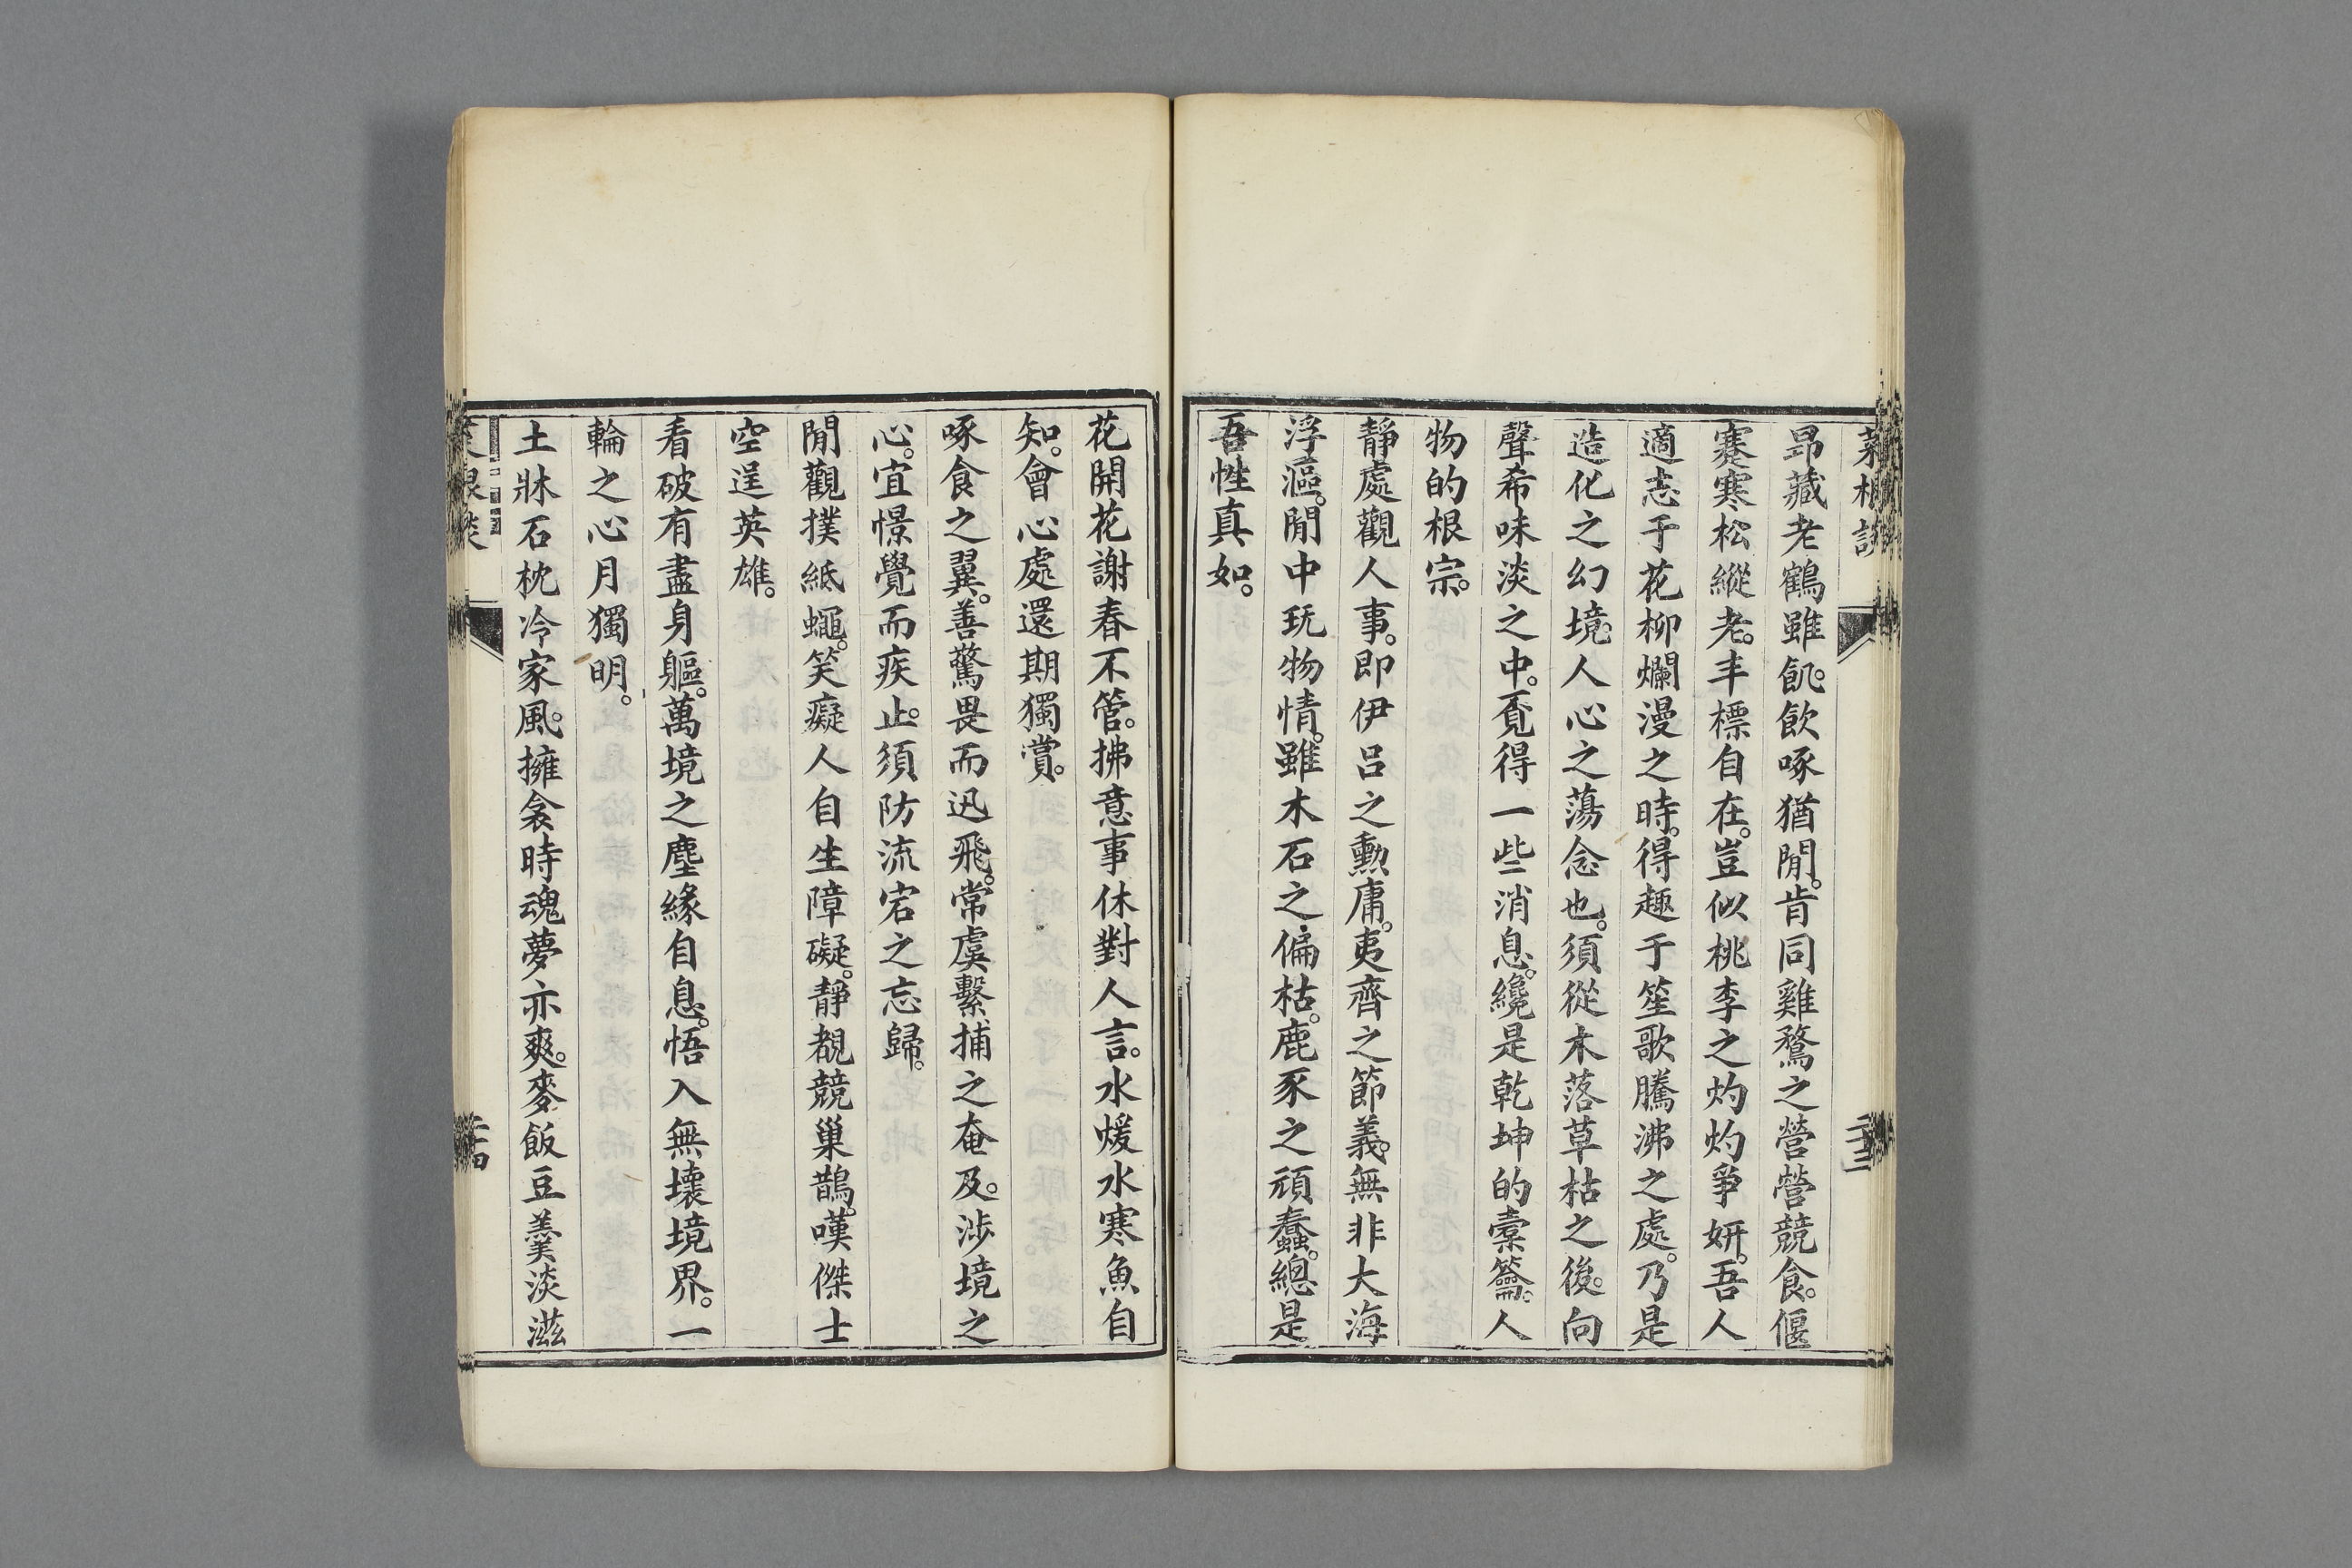 菜根談
二十三
昂藏老鶴雖飢。飲啄猶閒。肯同雞鶩之營營競食。偃
蹇寒松縱老。丰標自在。豈似桃李之灼灼爭妍。吾人
適志于花柳爛漫之時。得趣于笙歌騰沸之處。乃是
造化之幻境。人心之蕩念也。須從木落草枯之後。向
聲希味淡之中。覔得一些消息。纔是乾坤的槖籥。人
物的根宗。
靜處觀人事。即伊呂之勳庸。夷齊之節義。無非大海
浮漚。閒中玩物情。雖木石之偏枯。鹿豕之頑蠢。總是
吾性真如。
花開花謝春不管。拂意事休對人言。水煖水寒魚自
知。會心處還期獨賞。
啄食之翼。善驚畏而迅飛。常虞繫捕之奄及。涉境之
心。宜憬覺而疾止。須防流宕之忘歸。
閒觀撲紙蠅。笑癡人自生障礙。靜覩競巢鵲。嘆傑士
空逞英雄。
看破有盡身軀。萬境之塵緣自息。悟入無壞境界。一
輪之心月獨明。
土牀石枕冷家風。擁衾時魂夢亦爽。麥飯豆羹淡滋
菜根談
二十四